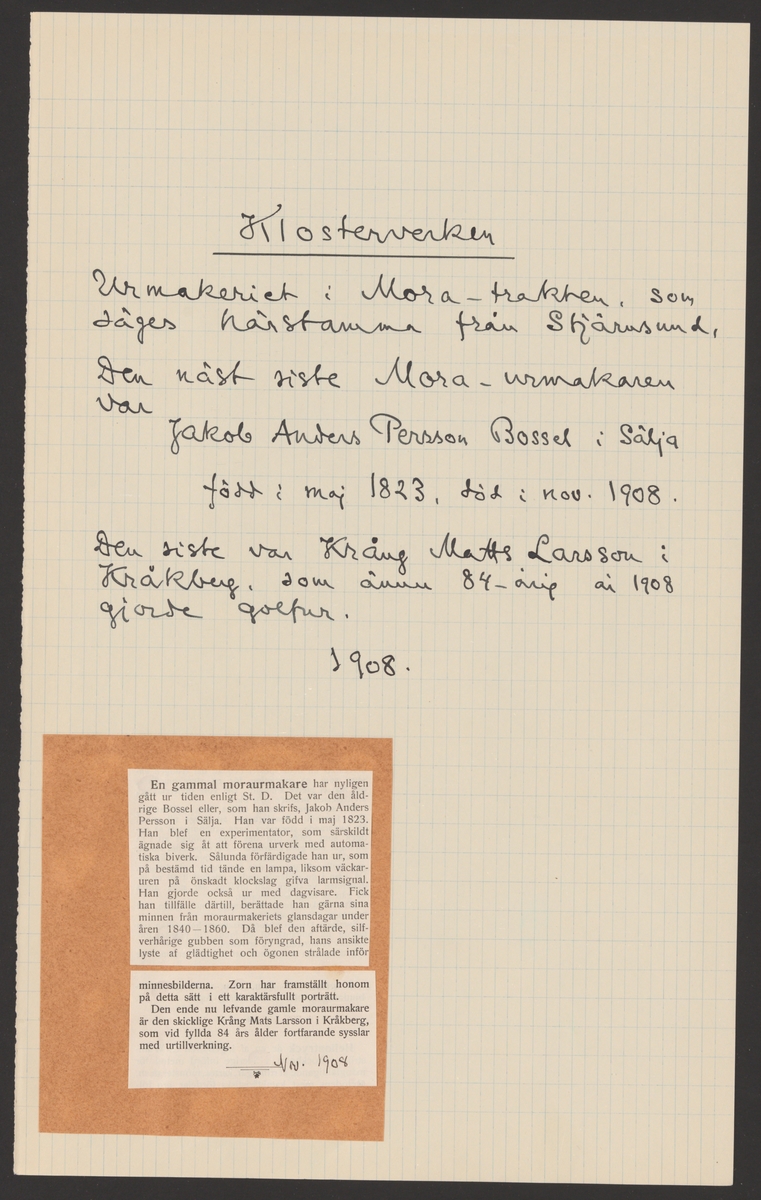 Klosterverken
Urmakeriet i Mora-trakten, som
säges härstamma från Stjärnsund.
Den näst siste Mora-urmakaren
var
Jakob Anders Persson Bossel i Sälja
född i maj 1823, död i nov. 1908.
Den siste var Krång Matts Larsson i
Kråkberg, som ännu 84-årig år 1908
gjorde golfur.
1908.
En gammal moraurmakare har nyligen
gått ur tiden enligt St. D. Det var den åld-
rige Bossel eller, som han skrifs, Jakob Anders
Persson i Sälja. Han var född i maj 1823.
Han blef en experimentator, som särskildt
ägnade sig åt att förena urverk med automa-
tiska biverk. Sålunda förfärdigade han ur, som
på bestämd tid tände en lampa, liksom väckar-
uren på önskadt klockslag gifva larmsignal.
Han gjorde också ur med dagvisare. Fick
han tillfälle därtill, berättade han gärna sina
minnen från moraurmakeriets glansdagar under
åren 1840—1860. Då blef den aftärde, silf-
verhårige gubben som föryngrad, hans ansikte
lyste af glädtighet och ögonen strålade inför
minnesbilderna. Zorn har framställt honom
på detta sätt i ett karaktärsfullt porträtt.
Den ende nu lefvande gamle moraurmakare
är den skicklige Krång Mats Larsson i Kråkberg,
som vid fyllda 84 års ålder fortfarande sysslar
med urtillverkning.
NN. 1908